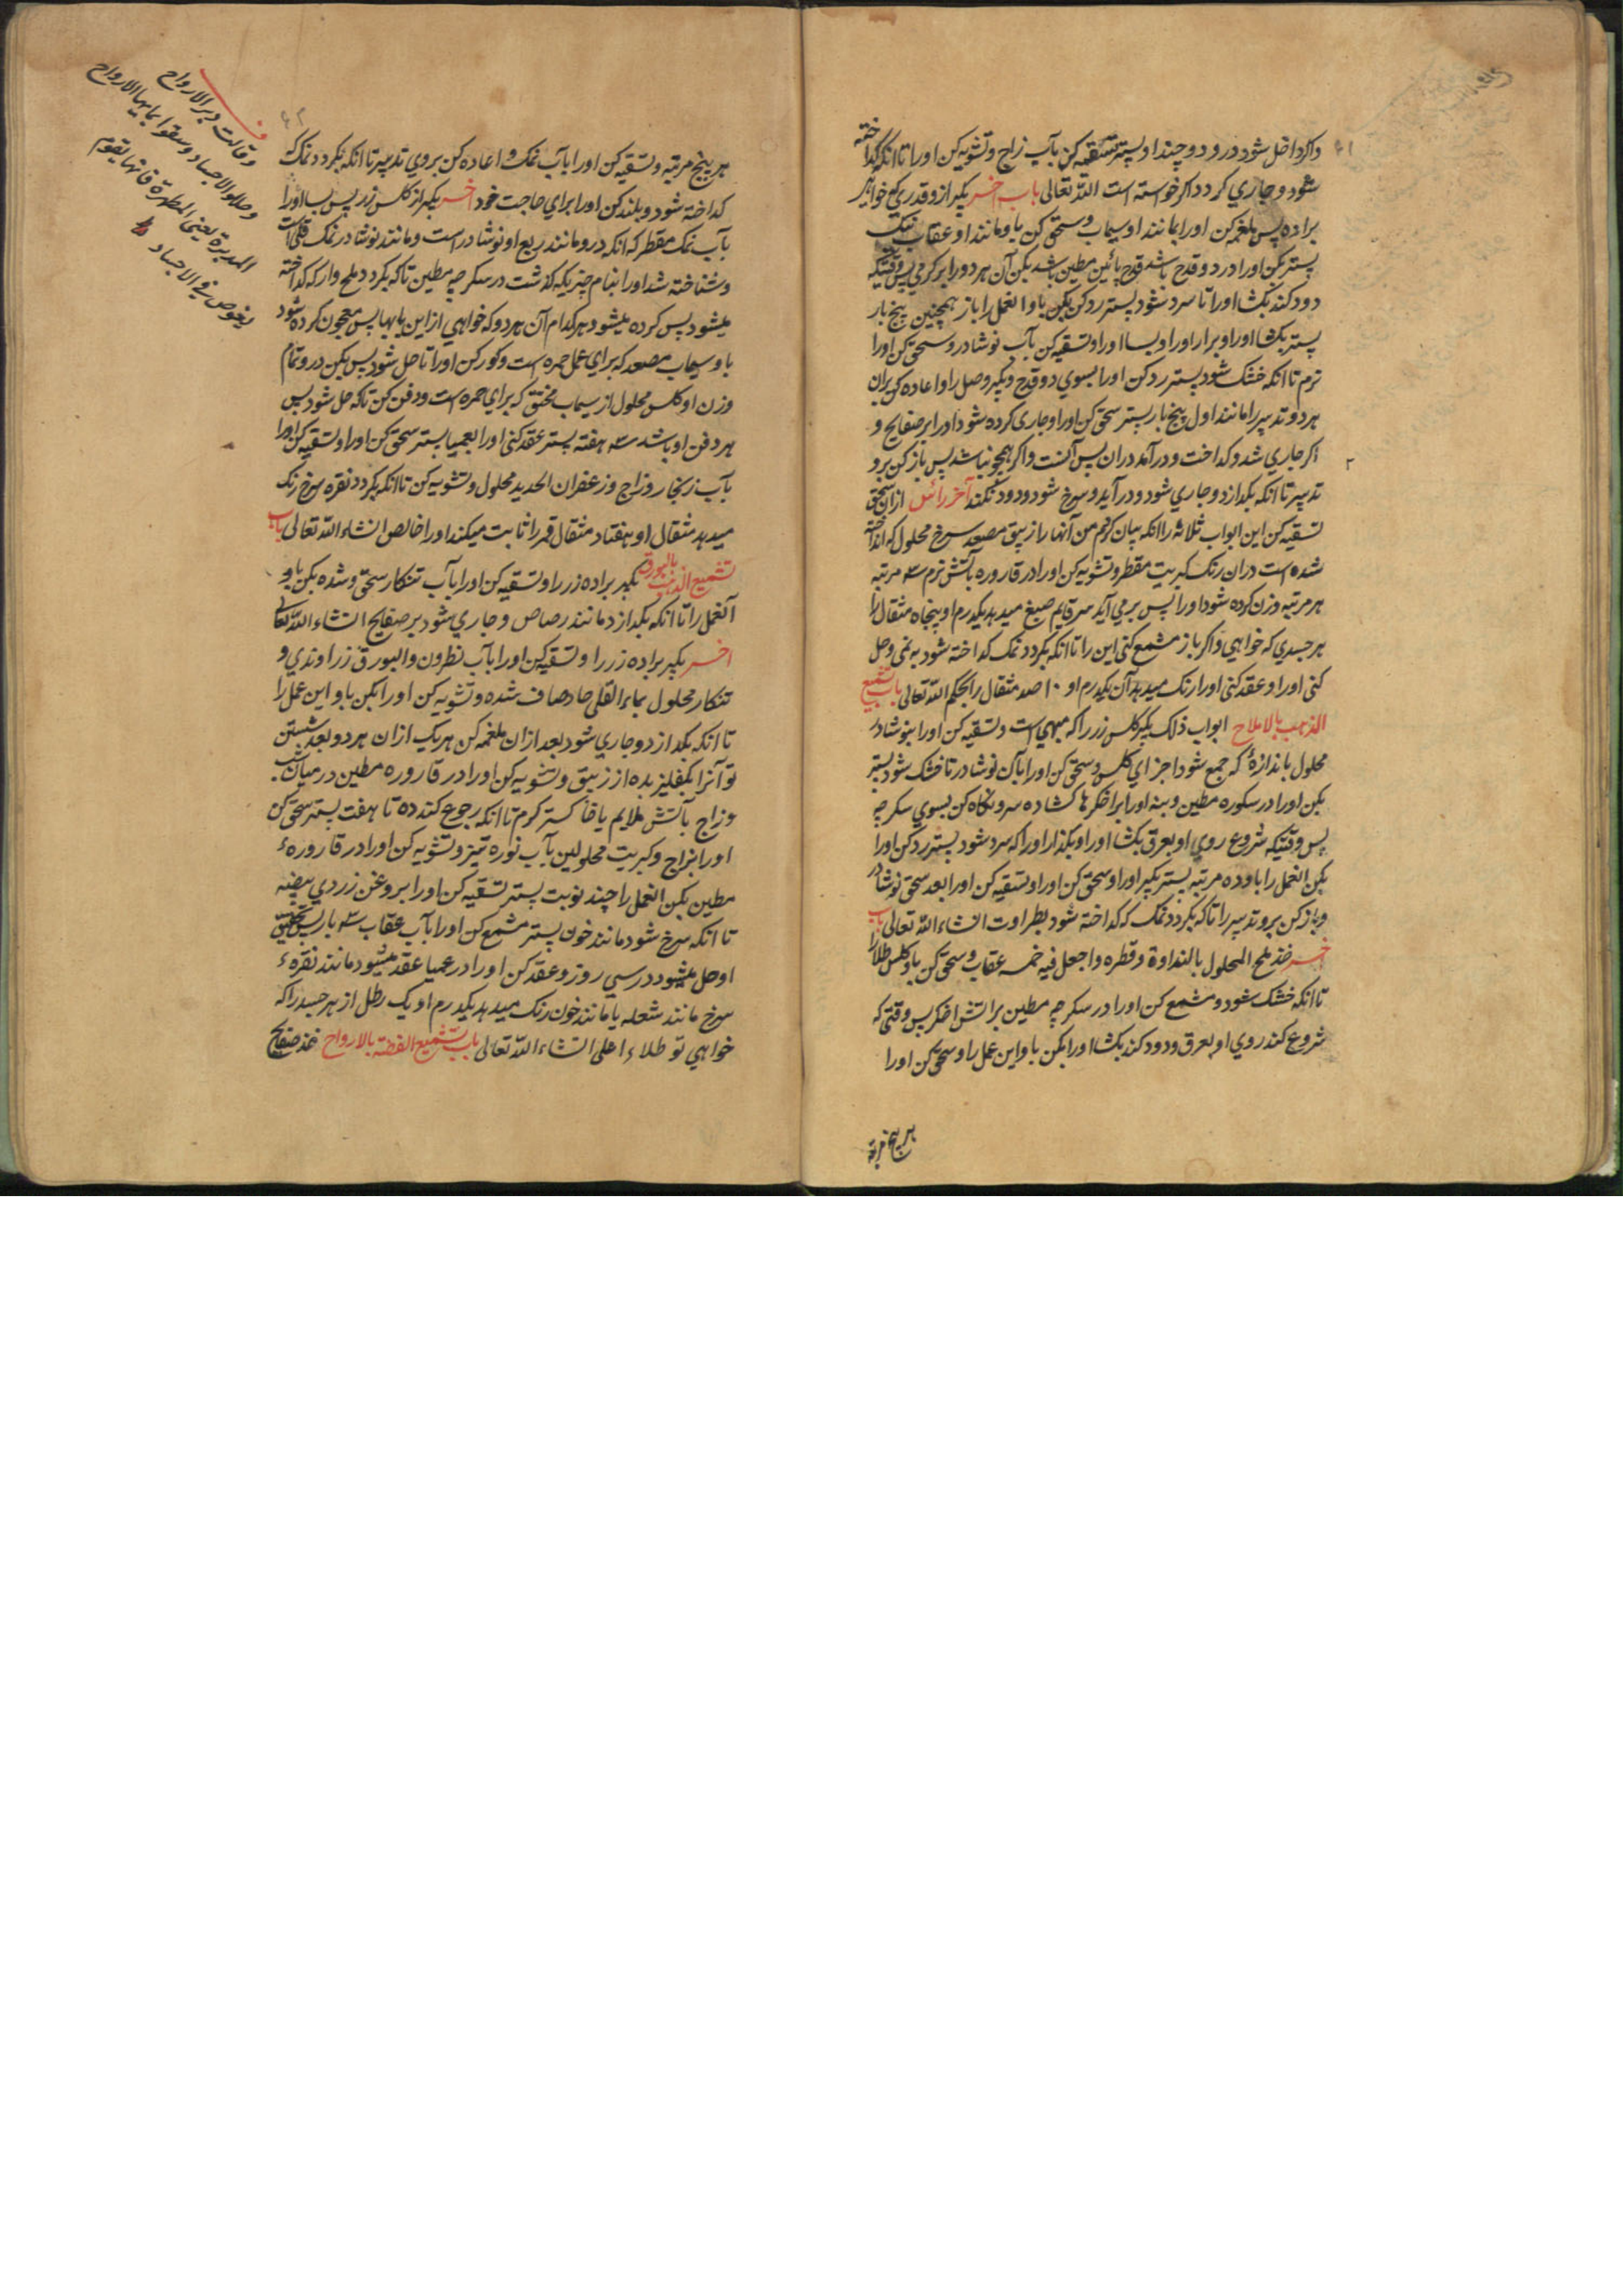 واکر داخل شود درو دو چند او پستر تسقیه کن بآب زاج و تشویه کن اورا تا انکه کداخته
شود و جاري کردد اکر خواسته است الله تعالی باب اخر بکیر از و قدری که خواهی
براده پس ملغمه کن اورا بمانند او سیماب و سحق کن باو مانند او عقاب نیک
پستر بکن اورا در دو قدح باشد قدح پائین مطین باشد بکن آن هر دو را بر کرمی پس وقتیکه
دود کند بکشا اورا تا سرد شود پستر رد کن بکن باو العمل را باز همچنین پنج بار
پستر بکشا اورا و برار اورا و بسا اورا و تسقیه کن بآب نوشادر و سحق کن اورا
نرم تا انکه خشک شود پستر رد کن اورا بسوي دو قدح و بکیر وصل را و اعاده کن بران
هر دو تدبیر را مانند اول پنج بار پستر سحق کن اورا و جاری کرده شود اورا بر صفایح و
اکر جاري شد و کداخت و درآمد دران پس آنست و اکر همچو نباشد پس باز کن برو
تدبیر تا انکه بکدازد و جاري شود و درآید و سرخ شود و دود نکند آخر رائس ازان سحق
تسقیه کن این ابواب ثلاثه را انکه بیان کردم من آنها را زیبق مصعد سرخ محلول که انداخته
شده است دران رنک کبریت مقطر و تشویه کن اورا در قاروره بآتش نرم ۳ مرتبه
هر مرتبه وزن کرده شود اورا پس برمی آید سر قایم صبغ میدهد یکدرم او پنجاه مثقال را
هر جسدي که خواهي و اکر باز مشمع کنی این را تا انکه بکردد نمک کداخته شود به نمی و حل
کنی اورا و عقد کنی اورا رنک میدهد آن یکدرم او ۱۰ صد مثقال را بحکم الله تعالی باب تشمیع
الذهب بالاملاح ابواب ذلک بکیر کلس زر را که مبهی است و تسقیه کن اورا بنوشادر
محلول باندازهٔ که جمع شود اجزاي کلس و سحق کن اورا بآن نوشادر تا خشک شود پستر
بکن اورا در سکوره مطین و بنه اورا بر اخکرها کشاده سر و نکاه کن بسوي سکرجه
پس وقتیکه شروع روي او بعرق بکشا اورا و بکذار اورا که سرد شود پستر رد کن اورا
بکن العمل را باو ده مرتبه پستر بکیر اورا و سحق کن اورا و تسقیه کن اورا بعد سحق نوشادر
و باز کن برو تدبیر را تا که بکردد نمک که کداخته شود بطراوت انشاء الله تعالی باب
اخر خذ ملح المحلول بالنداوة و قطره و اجعل فیه خمسه عقاب و سحق کن باو کلس طلا را
تا انکه خشک شود و مشمع کن اورا در سکرجه مطین بر آتش اخکر پس وقتی که
شروع کند روي او بعرق و دود کند بکشا اورا بکن باو این عمل را و سحق کن اورا
هر پنج مرتبه
هر پنج مرتبه و تسقیه کن اورا بآب نمک و اعاده کن بروي تدبیر تا انکه بکردد نمک که
کداخته شود و بلند کن اورا براي حاجت خود اخر بکیر از کلس زر پس بسا اورا
بآب نمک مقطر که انکه درو مانند ربع او نوشادر است و مانند نوشادر نمک قلی است
و شناخته شد اورا بنام چیزیکه کذشت در سکرجه مطین تا که بکردد ملح وار که کداخته
میشود پس کرده میشود هر کدام آن هر دو که خواهي از این بابها پس معجون کرده شود
باو سیماب مصعد که براي عمل حمره است و کور کن اورا تا حل شود پس بکن درو تمام
وزن او کلس محلول از سیماب مخنق که براي حمره است و دفن کن تا که حل شود پس
هر دفن او باشد ۳ هفته پستر عقد کنی اورا بعمیا پستر سحق کن اورا و تسقیه کن اورا
بآب زنجار و زاج و زعفران الحدید محلول و تشویه کن تا انکه بکردد نقره سرخ رنک
میدهد مثقال او هفتاد مثقال قمر را ثابت میکند اورا خالص انشاء الله تعالی باب
تشمیع الذهب بالبورق بکیر براده زر را و تسقیه کن اورا بآب تنکار سحق و شده بکن باو
آنعمل را تا انکه بکدازد مانند رصاص و جاري شود بر صفایح انشاء الله تعالی
اخر بکیر براده زر را و تسقیه کن اورا بآب نطرون و البورق زراوندي و
تنکار محلول بماء القلی حاد صاف شده و تشویه کن اورا بکن باو این عمل را
تا انکه بکدازد و جاري شود بعد ازان ملغمه کن هر یک ازان هر دو بعد شستن
تو آنرا بمفلیز بده از زیبق و تشویه کن اورا در قاروره مطین در میان شب
و زاج بآتش ملایم یا خاکستر کرم تا انکه رجوع کند ده تا هفت پستر سحق کن
اورا بزاج و کبریت محلولین بآب نوره تیز و تشویه کن اورا در قارورهٔ
مطین بکن العمل را چند نوبت پستر تسقیه کن اورا بروغن زردي بیضه
تا انکه سرخ شود مانند خون پستر مشمع کن اورا بآب عقاب ۳ بار پس تحقیق
او حل میشود در سي روز و عقد کن اورا در عمیا عقد میشود مانند نقرهٔ
سرخ مانند شعله یا مانند خون رنک میدهد یکدرم او یک رطل از هر جسد را که
خواهي تو طلاء اعلی انشاء الله تعالی باب تشمیع الفضة بالارواح خذ صفایح
وقالت دبر الارواح
وحللوا الاجساد وسقوا بمایها الارواح
المدبرة یعنی المطهرة فانها تقوم
یغوص فی الاجساد